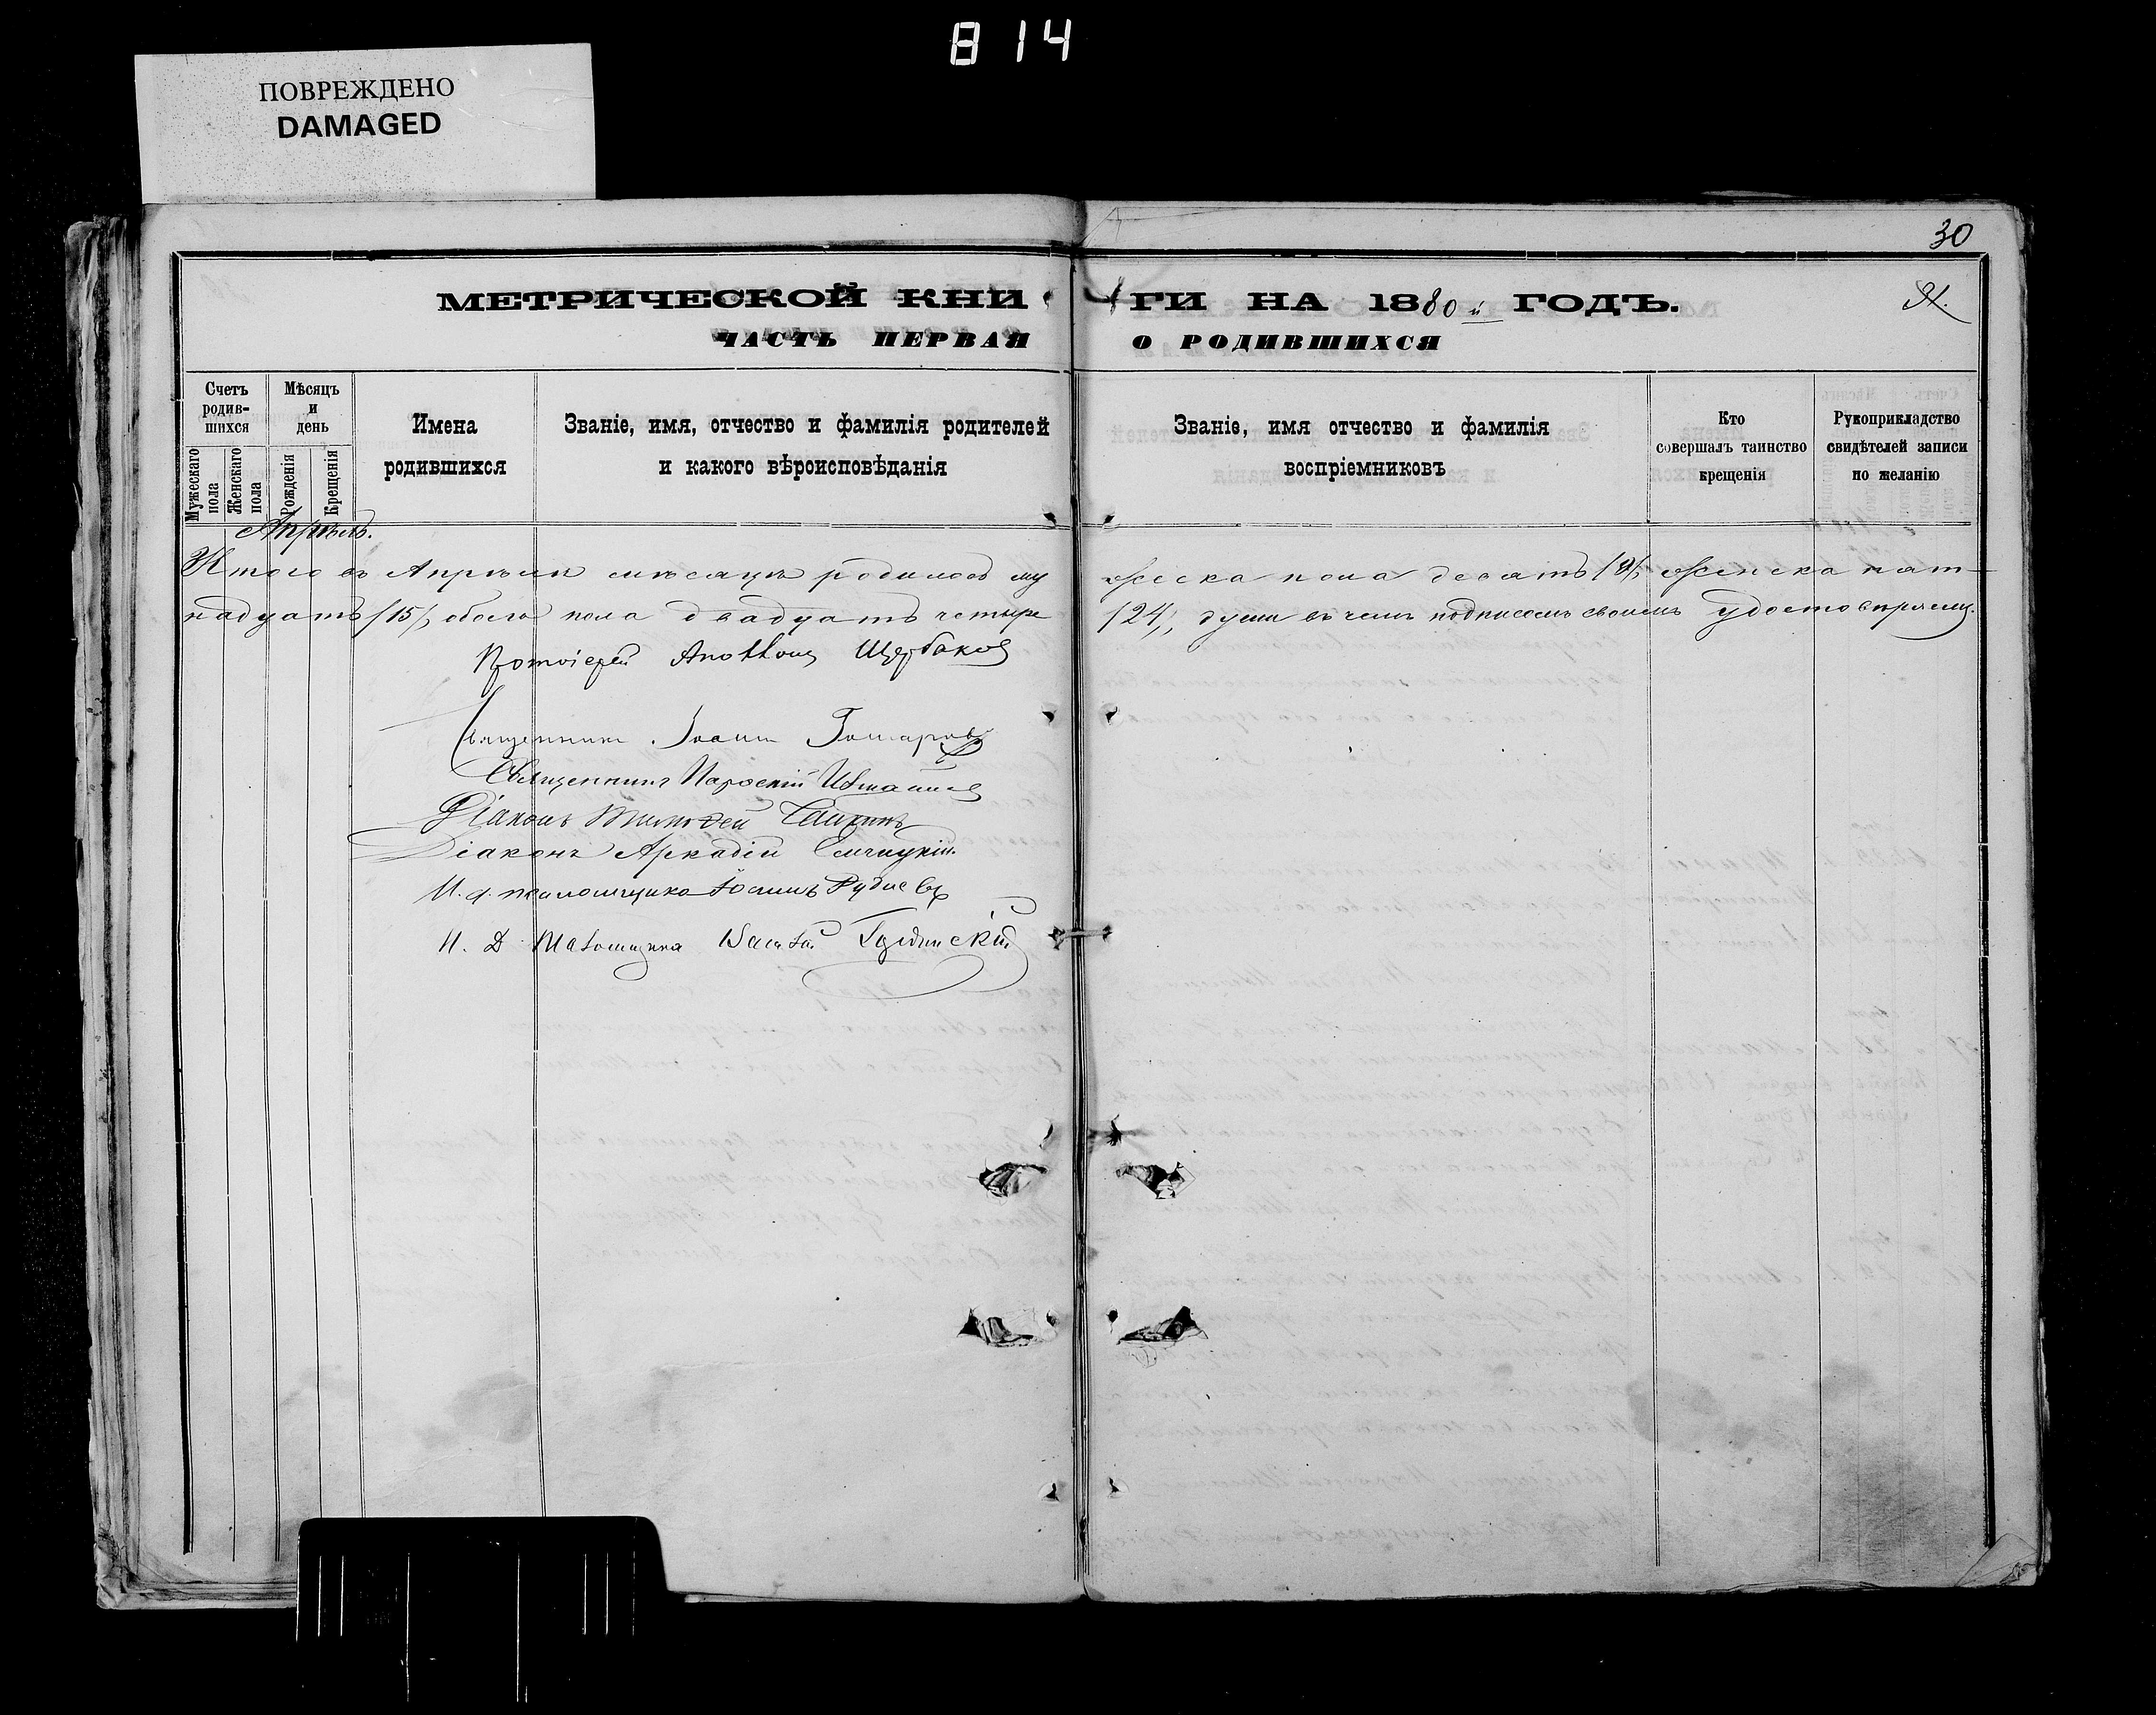 814
ПОВРЕЖДЕНО
DAMAGED
30
МЕТРИЧЕСКОЙ КНИ ГИ НА 1880й ГОДЪ.
ЧАСТЬ ПЕРВАЯ О РОДИВШИХСЯ
Счетъ родив-шихся
Мужескаго пола
Женскаго пола
Мѣсяцъ и день
Рожденія
Крещенія
Имена родившихся
Званіе, имя, отчество и фамилія родителей
и какого вѣроисповѣданія
Званіе, имя отчество и фамилія
воспріемниковъ
Кто
совершалъ таинство
крещенія
Рукоприкладство
свидѣтелей записи
по желанію
Апрѣль.
Итого въ Апрѣлѣ мѣсяцѣ родилось му жеска пола девять /9/, женска пят-
надцать /15/, обоего пола двадцать четыре /24/, души въ чемъ подписомъ своимъ удостовѣряемъ.
Протоіерей Щербаковъ
Священникъ Іоаннъ
Священникъ
Діаконъ Тимофей
Діаконъ Аркадій
И. д. псаломщика
И. Д. Василій